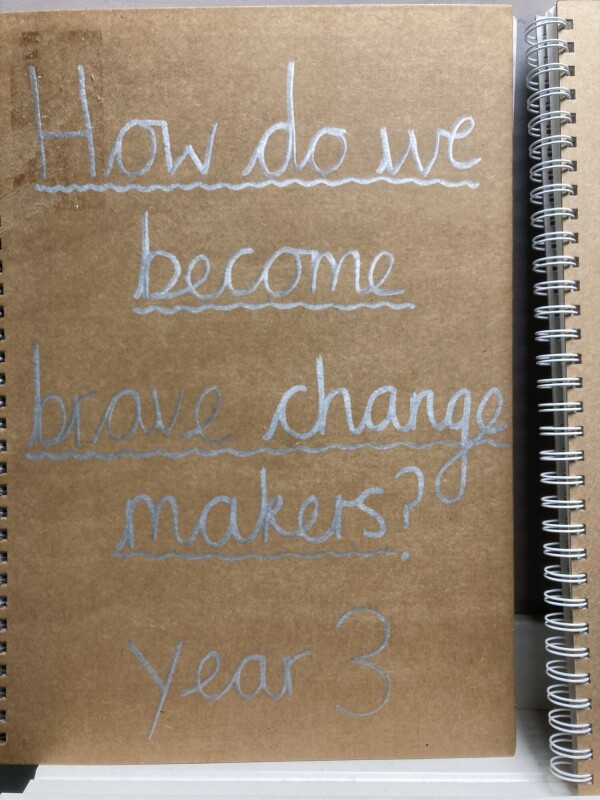 How do we
become
brave change
makers?
year 3